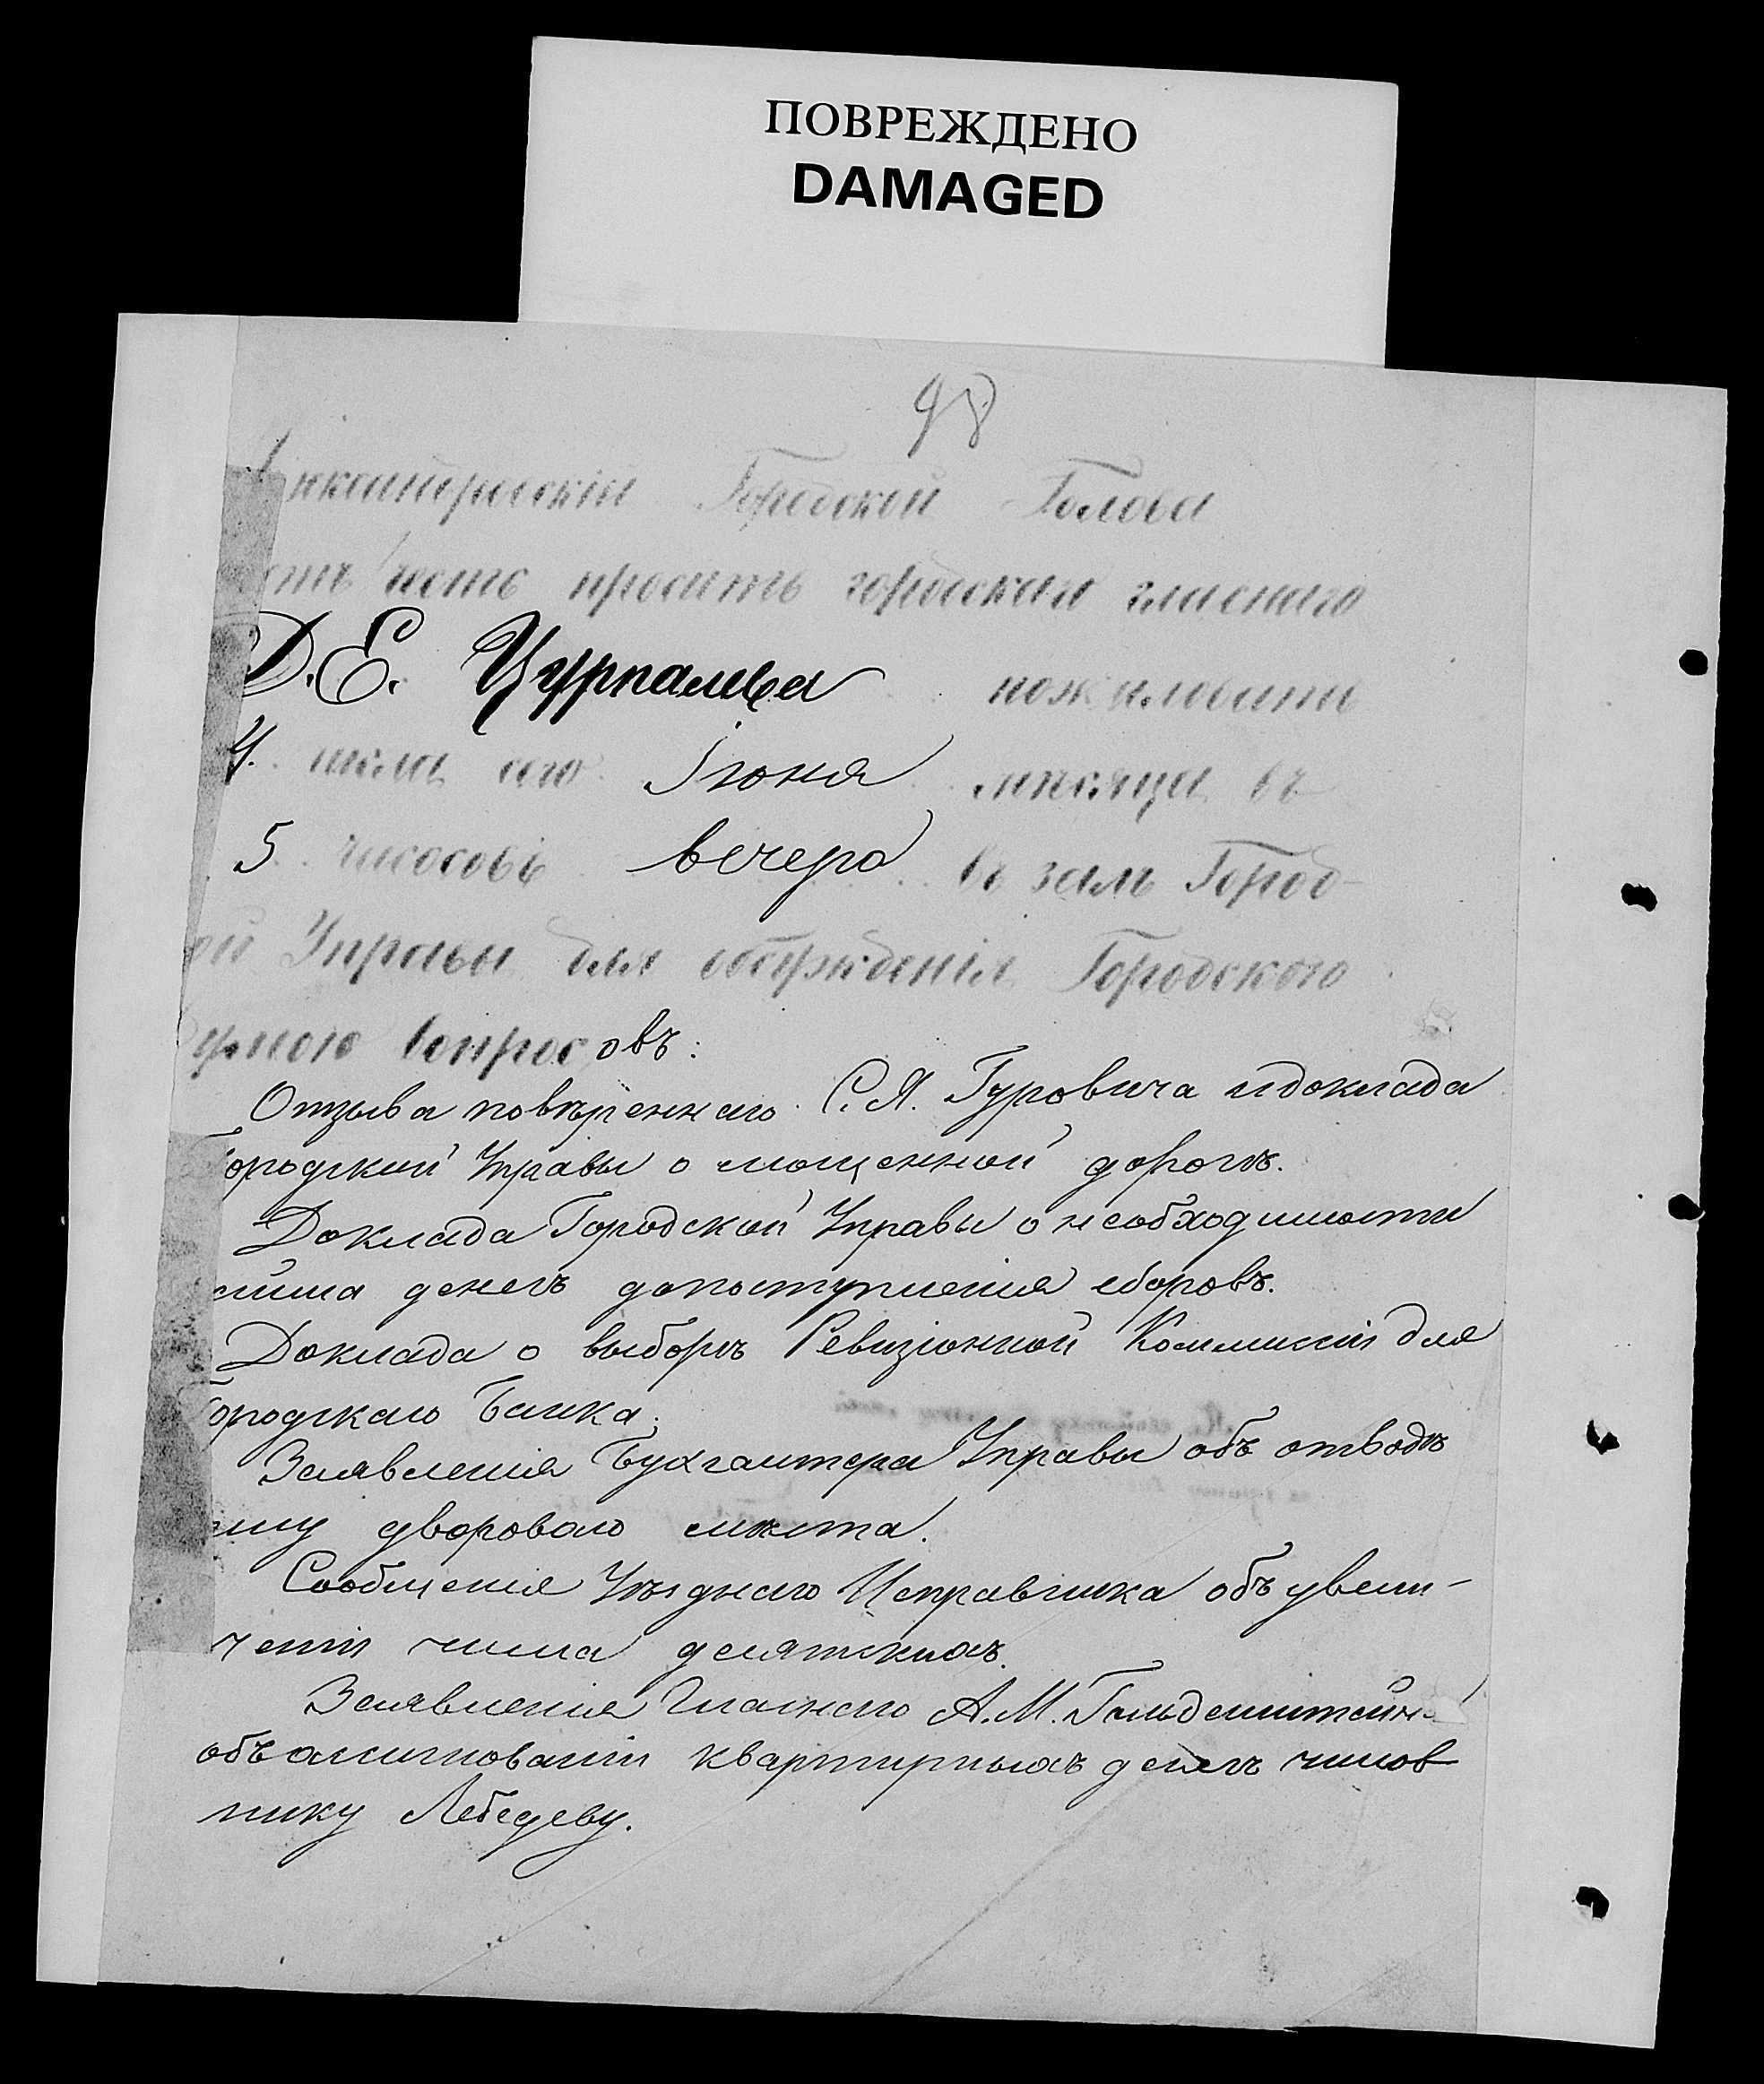 ПОВРЕЖДЕНО
DAMAGED
98
Городской Голова
честь просить городскаго гласнаго
Д. Е. пожаловать
4. числа сего Іюня мѣсяца въ
5 часовъ вечера въ залъ Город-
ой Управы для обсужденія Городского
вопросовъ:
Отзыва повѣреннаго С. Я. Гуровича и доклада
Городской Управы о мощенной дорогѣ.
Доклада Городской Управы о необходимости
займа денегъ до поступленія сборовъ.
Доклада о выборѣ Ревизіонной Коммисіи для
Городскаго Банка.
Заявленія Бухгалтера Управы объ отводѣ
ему двороваго мѣста.
Сообщенія Уѣзднаго Исправника объ увели-
ченіи числа десятскихъ.
Заявленія Гласнаго А. М. Гольденштейна
объ ассигнованіи квартирныхъ денегъ чинов
нику Лебедеву.